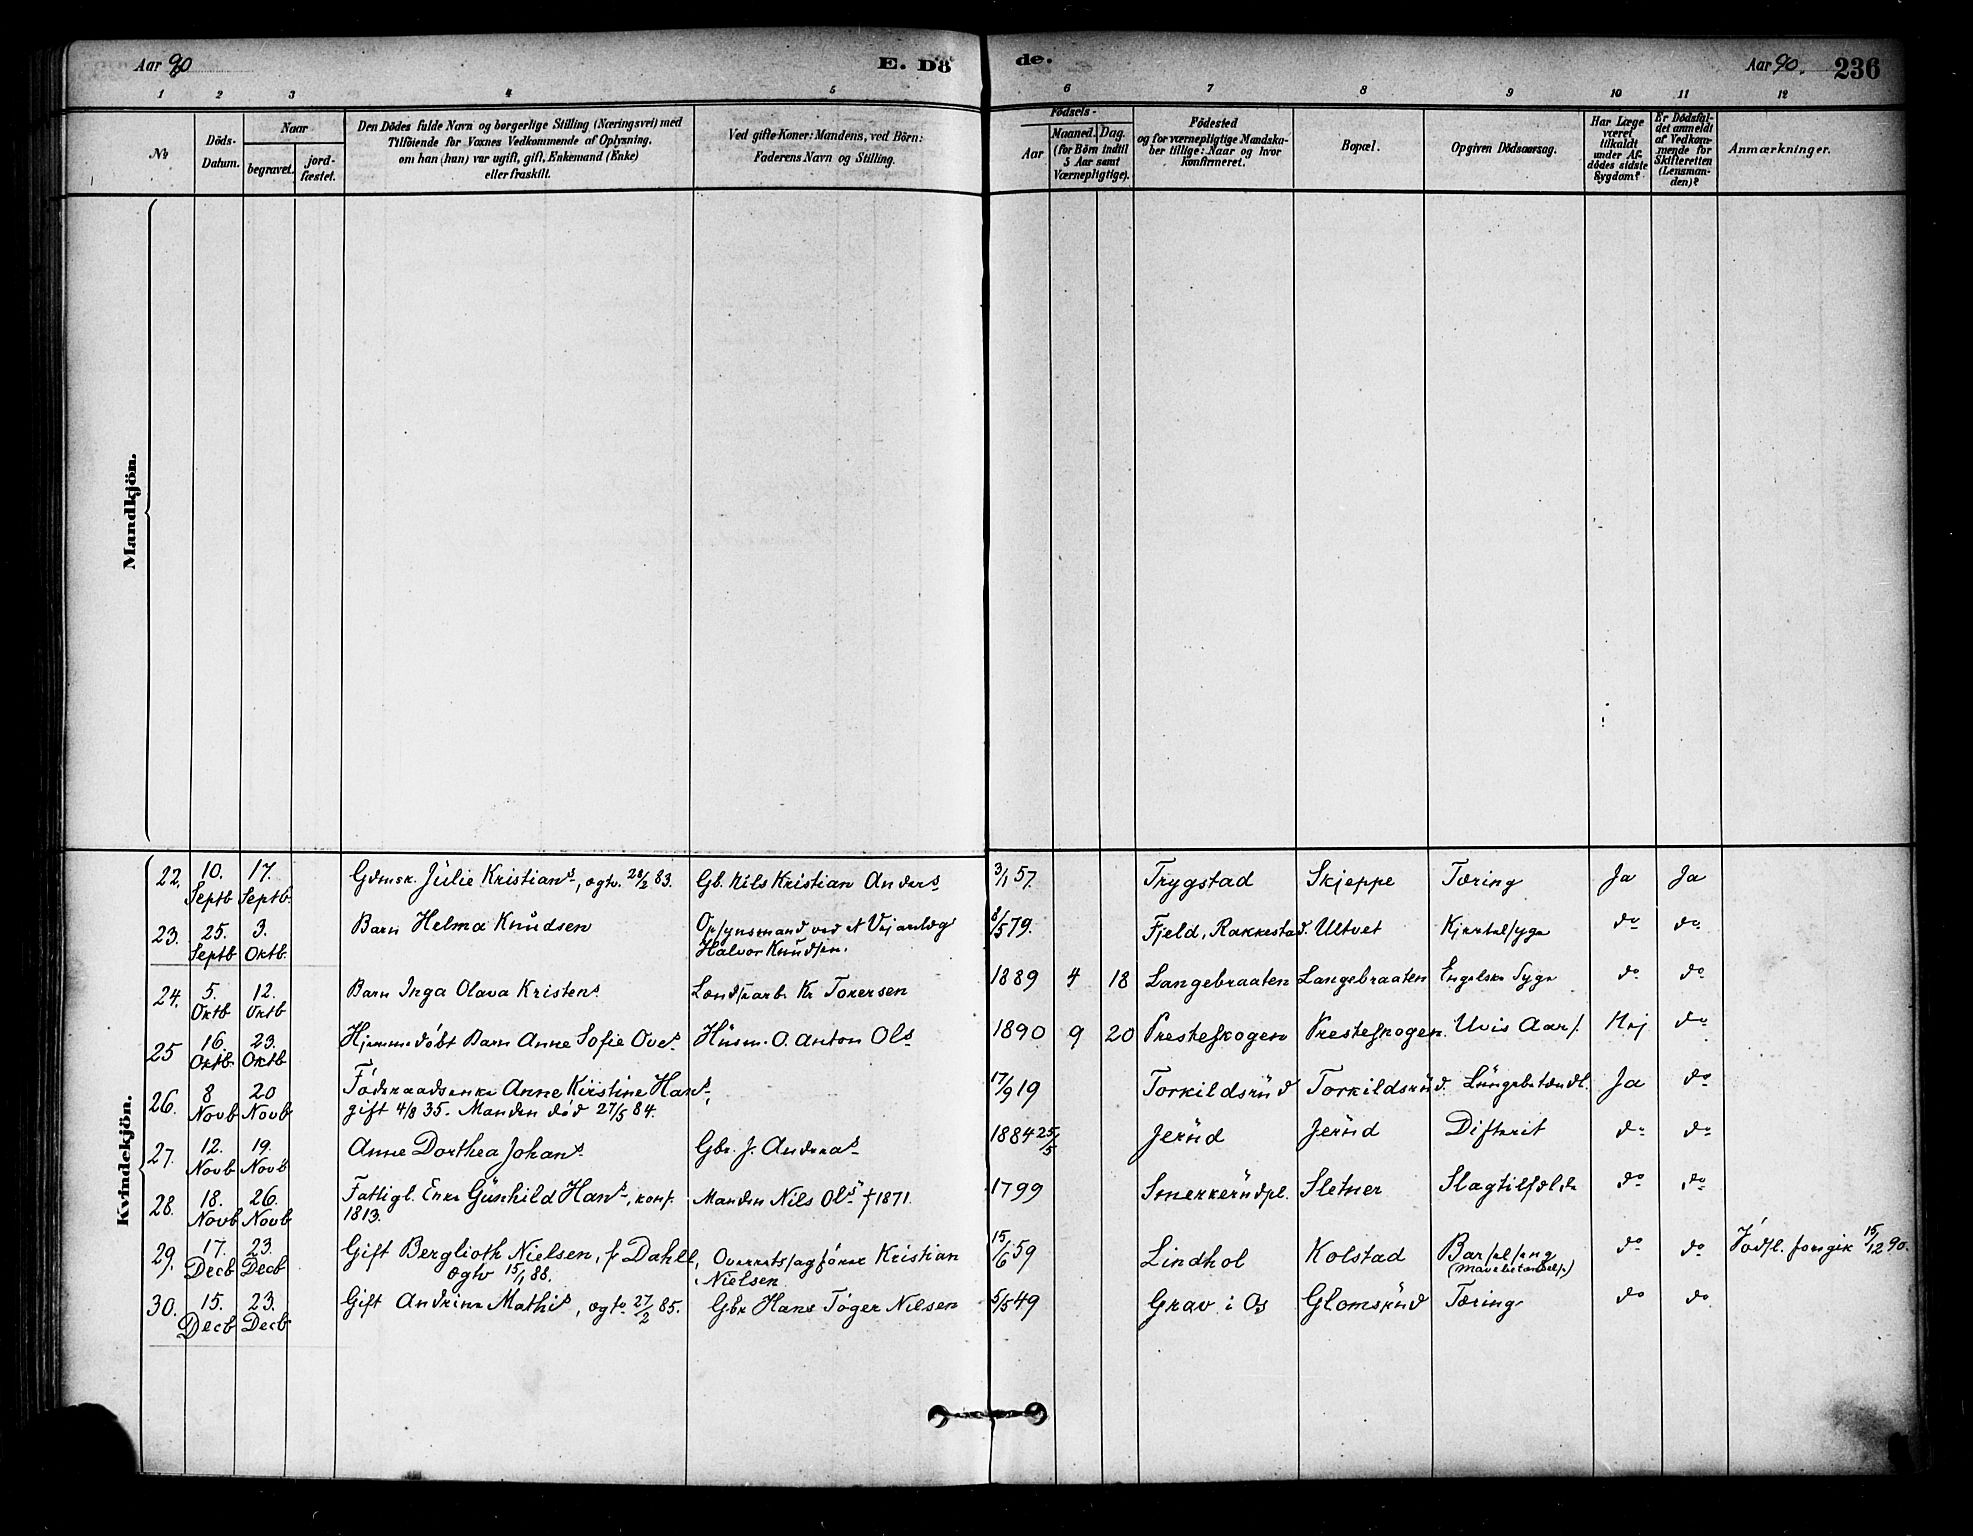 Aar 90
E. Dö
de.
Aar 90.
236
1 2 3 4 5 6 7 8 9 10 11 12
No
Döds-
Datum.
Naar
begravet.
jord-
fæstet.
Den Dödes fulde Navn og borgerlige Stilling (Næringsvei) med
Tilföiende for Voxnes Vedkommende af Oplysning,
om han (hun) var ugift, gift, Enkemand (Enke)
eller fraskilt.
Ved gifte Koner: Mandens, ved Börn:
Faderens Navn og Stilling.
Födsels-
Aar
Maaned. Dag.
(for Börn indtil
5 Aar samt
Værnepligtige).
Födested
og for værnepligtige Mandska-
ber tillige: Naar og hvor
konfirmeret.
Bopæl.
Opgiven Dödsaarsag.
Har Læge
været
tilkaldt
under Af-
dödes sidste
Sygdom?
Er Dödsfal-
det anmeldt
af Vedkom-
mende for
Skifteretten
(Lensman-
den)?
Anmærkninger.
Mandkjön.
Kvindekjön.
22. 10. Septb 17. Septb. Gdmsk. Julie Kristians, ogtv. 28/2 83. Gb. Nils Kristian Anders 3/1 57. Trygstad Skjeppe Tæring Ja Ja
23. 25. Septb 3. Oktb. Barn Helma Knudsen Opsynsmand ved et Vejanlæg
Halvor Knudsen. 8/5 79. Fjeld, Rakkestad. Ultvet Kjertelsyge do do
24. 5. Oktb 12. Oktb Barn Inga Olava Kristens Kr Torersen 1889 4 18 Langebraaten Langebraaten Engelske Syge do do
25 16. Oktb. 23. Oktb Hjemmedøbt Barn Anne Sofie Oves Husm. O. Anton Ols 1890 9 20 Presteskogen Presteskogen. Uvis Aars. Nej do
26. 8 Novb 20 Novb Føderaadsenke Anne Kirstine Hans,
gift 4/8 35. Manden død 27/5 84. 17/9 19 Torkildsrud Torkildsrud. Lungebetændl. Ja do
27. 12. Novb 19. Novb Anne Dorthea Johans Gbr. J. Andreas 1884 25/5 Jerud Jerud Difterit do do
28. 18. Novb 26. Novb Fattigl. Enke Gunhild Hans, konf.
1813. Manden Nils Ols † 1871. 1799 Smerkerudpl. Sletner Slagtilfælde do do
29. 17. Decb 23. Decb Gift Berglioth Nielsen, f Dahll,
Ogtv 15/1 88. Overretssagfører Kristian
Nielsen 15/6 59 Lindhol Kolstad Barselseng
do do Jordf. foregik 15/12 90.
30. 15. Decb 23. Decb Gift Andrine Mathis, ogtv. 27/2 85. Gbr Hans Tøger Nilsen 5/5 49 Grav i Os Glomsrud Tæring do do